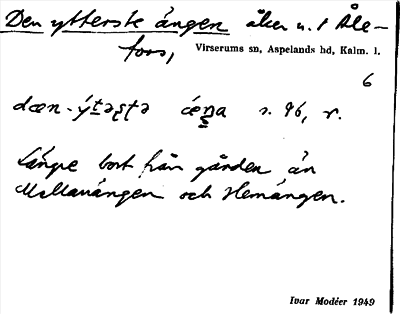 Den ytterste ängen åker u. t Åle-
fors,
Virserums sn, Aspelands hd, Kalm. l.
6
dæn-ýt̠əʂʈə ǽn̠a s. 96, r.
Längre bort från gården än
Mellanängen och Hemängen.
Ivar Modéer 1949